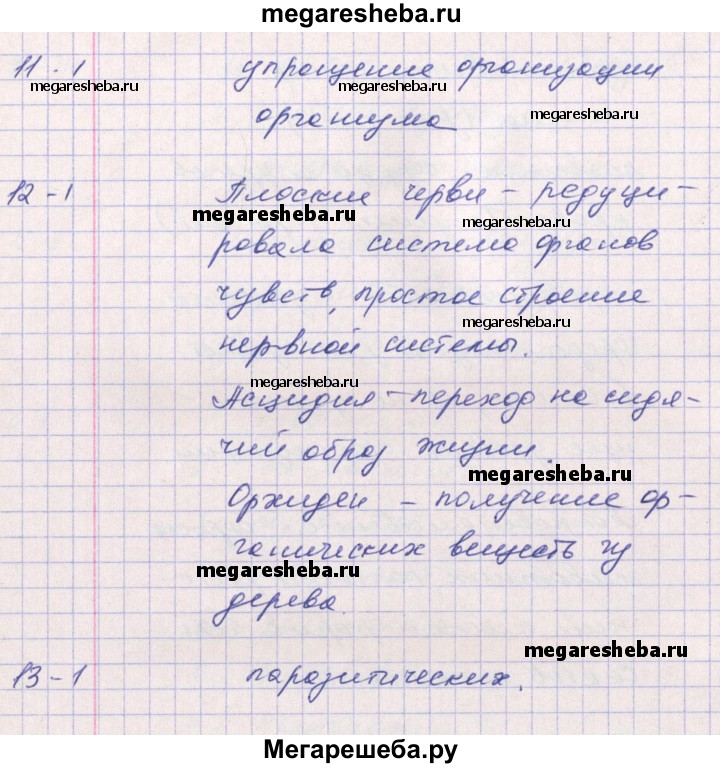 megaresheba.ru
11-1 упрощение организации
megaresheba.ru megaresheba.ru
организма megaresheba.ru
12-1 Плоские черви - редуци-
megaresheba.ru megaresheba.ru
ровала система органов
megaresheba.ru
чувств, простое строение
megaresheba.ru
нервной системы.
megaresheba.ru
Асцидия - переход на сидя-
чий образ жизни.
megaresheba.ru
Орхидеи - получение ор-
ганических веществ из
megaresheba.ru
дерева.
megaresheba.ru
13-1 паразитических.
Мегарешеба.ру